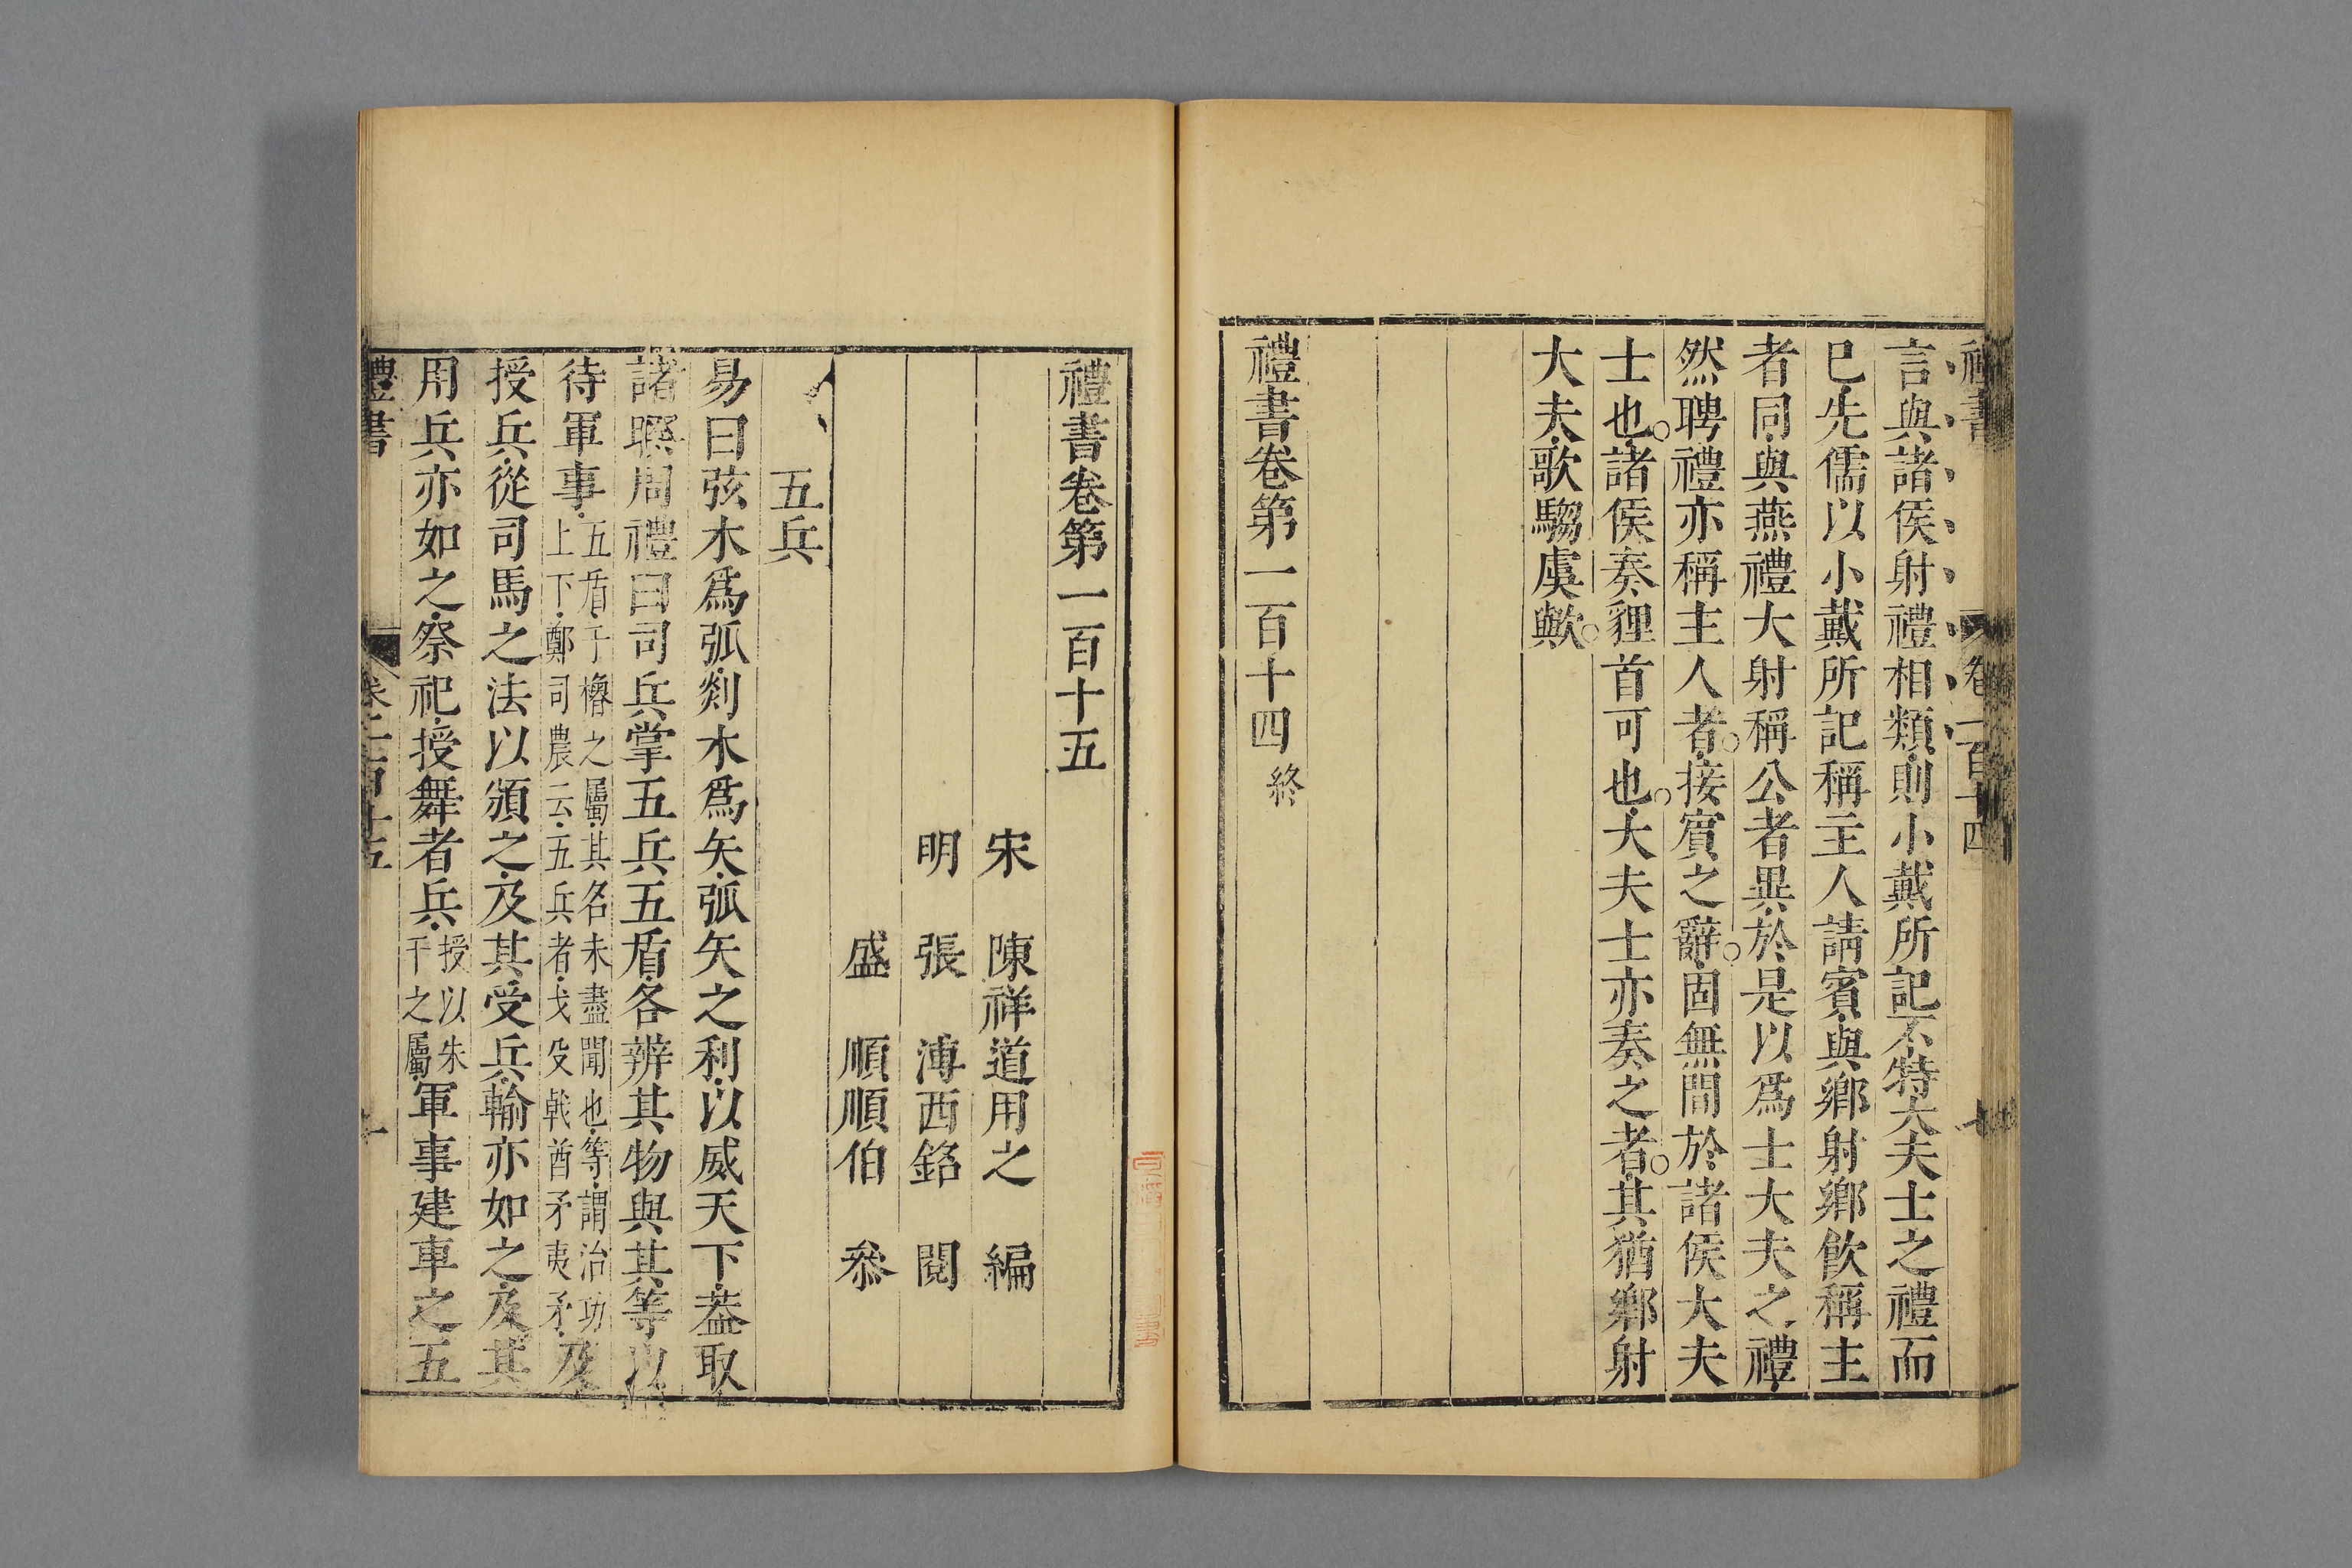 禮書 卷一百十四 七
言與諸侯射禮相類則小戴所記不特大夫士之禮而
已先儒以小戴所記稱主人請賓與鄉射鄉飲稱主
者同與燕禮大射稱公者異於是以爲士大夫之禮
然聘禮亦稱主人者接賓之辭固無間於諸侯大夫
士也諸侯奏貍首可也大夫士亦奏之者其猶鄉射
大夫歌騶虞歟
禮書卷第一百十四 終
禮書卷第一百十五
宋 陳祥道用之 編
明 張 溥西銘 閱
盛 順順伯 叅
五兵
易曰弦木爲弧剡木爲矢弧矢之利以威天下蓋取
諸睽周禮曰司兵掌五兵五盾各辨其物與其等以
待軍事五盾干櫓之屬其名未盡聞也等謂治功上下鄭司農云五兵者戈殳戟酋矛夷矛及
授兵從司馬之法以頒之及其受兵輸亦如之及其
用兵亦如之祭祀授舞者兵授以朱干之屬軍事建車之五
禮書 卷一百十五 一